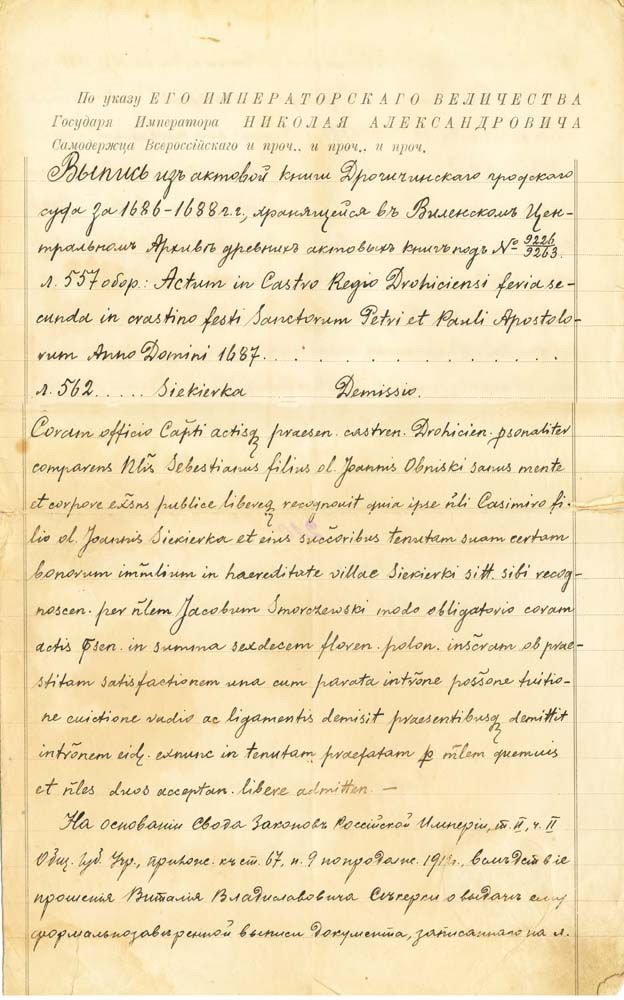 По указу ЕГО ИМПЕРАТОРСКАГО ВЕЛИЧЕСТВА
Государя Императора НИКОЛАЯ АЛЕКСАНДРОВИЧА
Самодержца Всероссійскаго и проч., и проч., и проч.
Выпись изъ актовой книги Дрогичинскаго гродскаго
суда за 1686-1688 г.г., хранящейся въ Виленскомъ Цен-
тральномъ Архивѣ древнихъ актовыхъ книгъ подъ № 9226/9263.
л. 557 обор.: Actum in Castro Regio Drohiciensi feria se-
cunda in crastino festi Sanctorum Petri et Pauli Apostolo-
rum Anno Domini 1687. . . . . . . . . . . . . . .
л. 562. . . . . Siekierka Demissio.
Coram officio Capti actisq praesen. castren. Drohicien. psonaliter
comparens Nlis Sebestianus filius ol. Joannis Obniski sanus mente
et corpore exsns publice libereq recognouit quia ipse nli Casimiro fi-
lio ol. Joannis Siekierka et eius succoribus tenutam suam certam
bonorum immlium in haereditate villae Siekierki sitt. sibi recog-
noscen. per nlem Jacobum Smorczewski modo obligatorio coram
actis psen. in summa sexdecem floren. polon. inscram ob prae-
stitam satisfactionem una cum parata introne possone tuitio-
ne euictione vadio ac ligamentis demisit praesentibusq demittit
intronem eid. exnunc in tenutam praefatam p mlem quemuis
et nles duos acceptan. libere admitten. —
На основаніи Свода Законовъ Россійской Имперіи, т. II, ч. II
Общ. Губ. Учр., прилож. къ ст. 67, п. 9 по продолж. 1912г., вслѣдствіе
прошенія Виталія Владиславовича Сѣкерки о выдачѣ ему
формальнозавѣренной выписи документа, записаннаго на л.